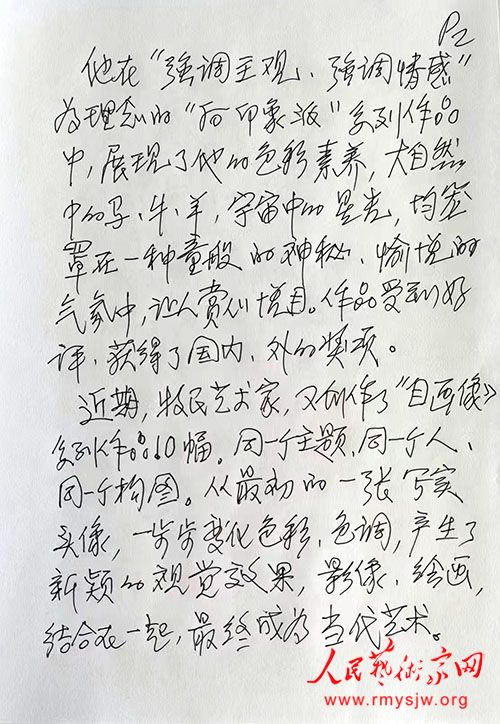 P2
他在“强调主观、强调情感”
为理念的“后印象派”系列作品
中,展现了他的色彩素养,大自然
中的马、牛、羊,宇宙中的星光,均笼
罩在一种童般的神秘、愉悦的
气氛中,让人赏心悦目。作品受到好
评,获得了国内、外的奖项。
近期,牧民艺术家,又创作了《自画像》
系列作品10幅。同一个主题,同一个人、
同一个构图。从最初的一张写实
头像,一步步变化色彩,色调,产生了
新颖的视觉效果,影像、绘画,
结合在一起,最终成为当代艺术。
人民艺术家网
www.rmysjw.org